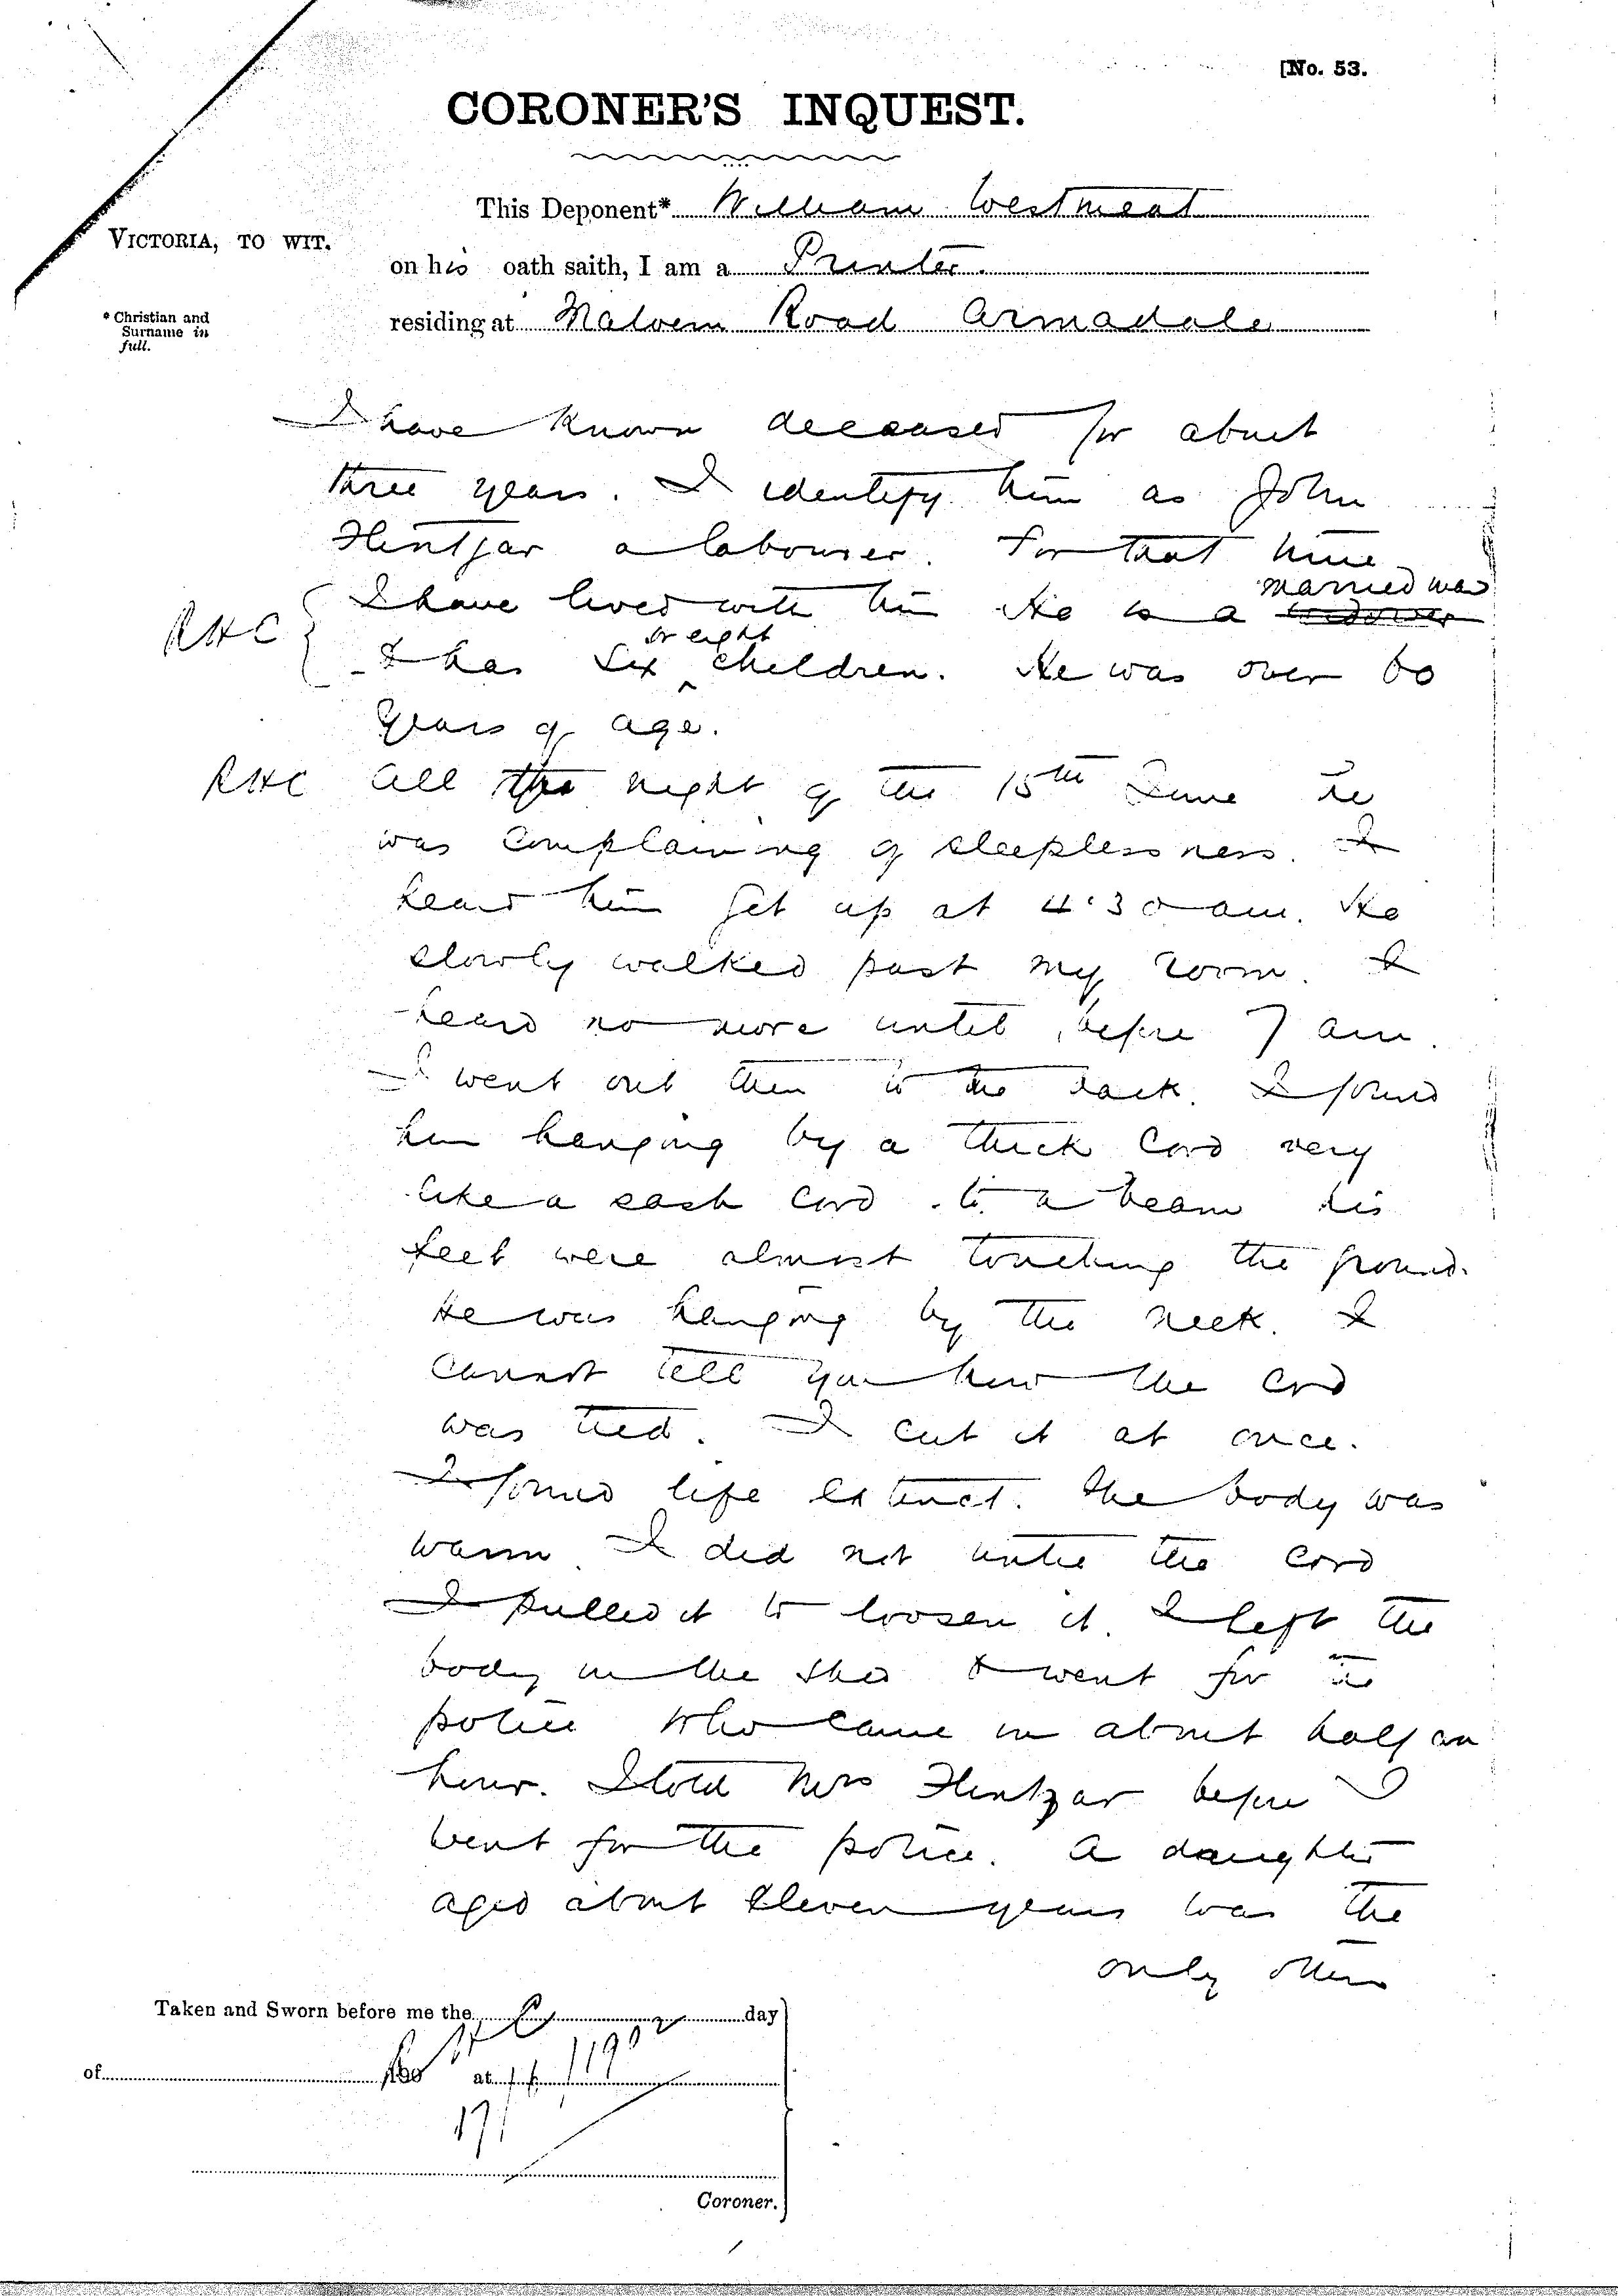 [No. 53.
CORONER'S INQUEST.
This Deponent* William Westmeat
VICTORIA, TO WIT.
on his oath saith, I am a Printer.
* Christian and Surname in full.
residing at Malvern Road Armadale
I have known deceased for about
three years. I identify him as John
Flintzar a labourer. For that time
married man
I have lived with him He is a widower
RHC
or eight
& has six children. He was over 60
years of age.
RHC All the night of the 15th June he
was complaining of sleeplessness. I
heard him get up at 4.30 am. He
slowly walked past my room. I
heard no more until before 7 am.
I went out then to the back. I found
him hanging by a thick cord very
like a sash cord to a beam his
feet were almost touching the ground.
He was hanging by the neck. I
cannot tell you how the cord
was tied. I cut it at once.
I found life extinct. The body was
warm I did not untie the cord
I pulled it to loosen it. I left the
body in the shed & went for the
police who came in about half an
hour. I told Mrs Flintzar before I
went for the police. A daughter
aged about eleven years was the
only other
Taken and Sworn before me the day
of at 1902
Coroner.